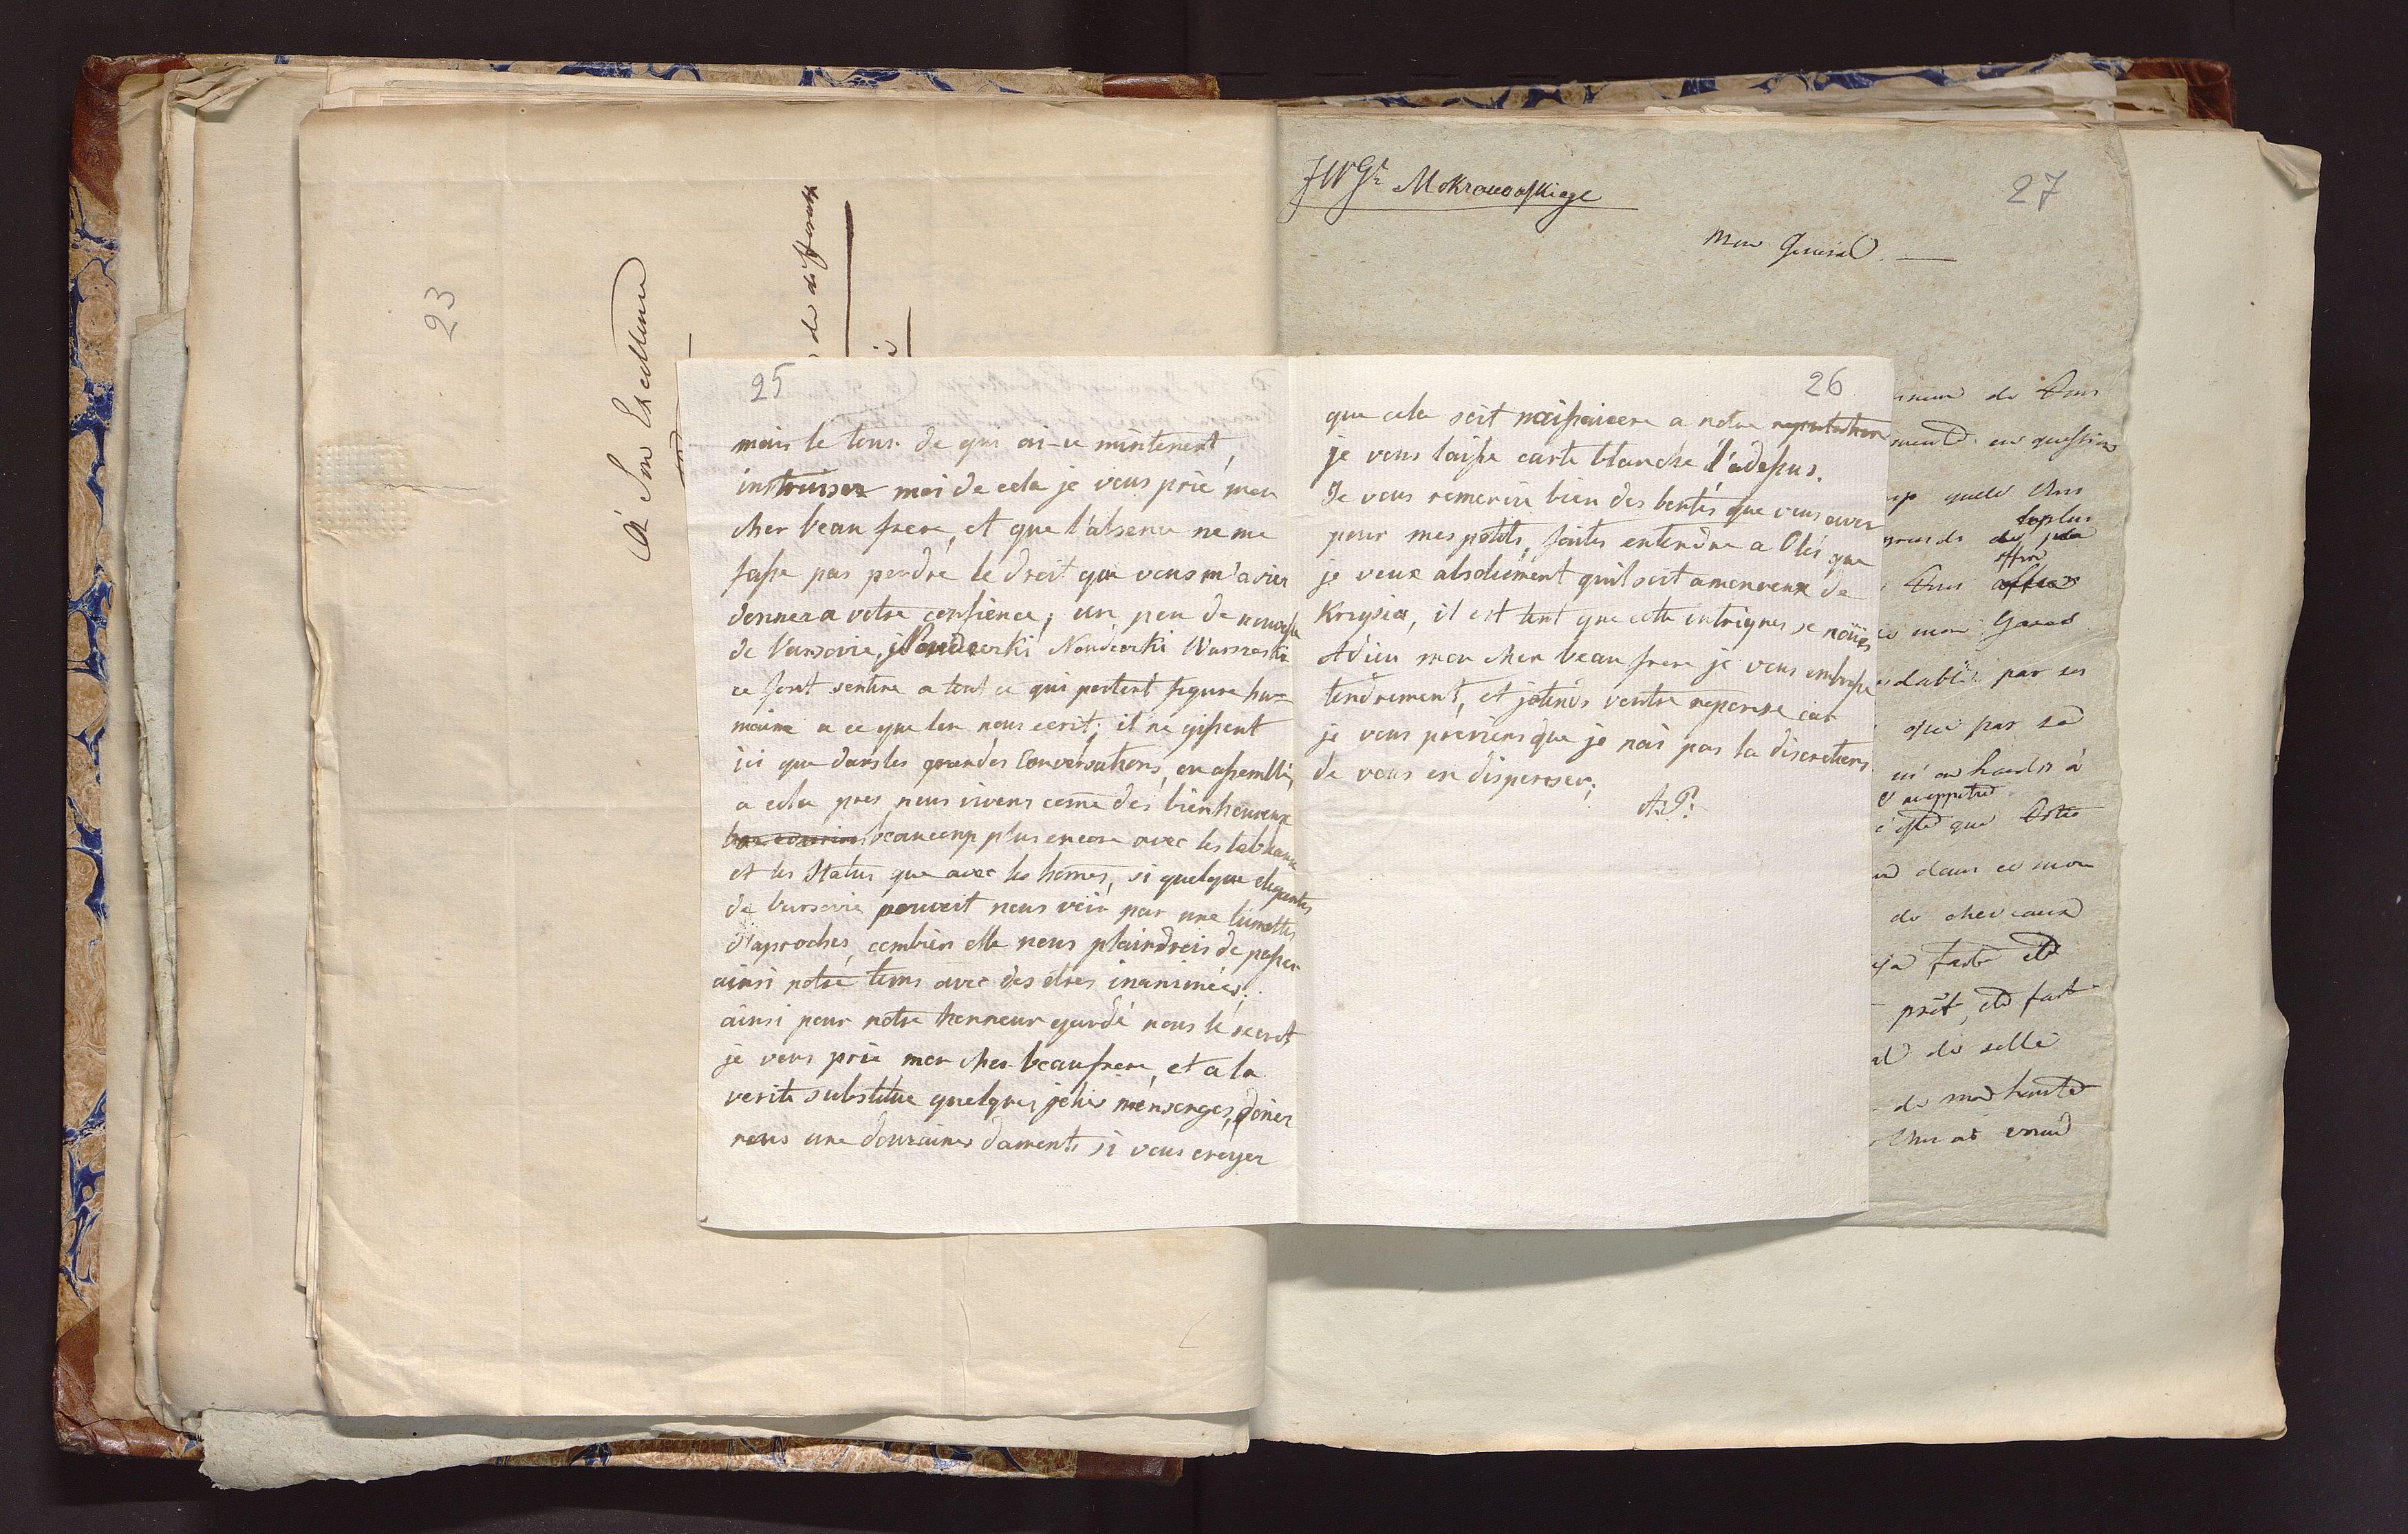 23
A Son Excellence
de differents
25
mais le tour de qui ai-ce mintenent,
instruisez moi de cela je vous prie mon
cher beau frere, et que l'absence ne me
fasse pas perdre le droit que vous m'avier
donner a votre confience; un peu de nouvelle
de Varsovie, Noudecrki Noudeorki Warszaskie
ce font sentire a tout ce qui portent figure hu=
maine a ce que l'on nous ecrit; il ne gissent
ici que dans les grandes Conversations, en assemblé,
a cela pres nous vivons come des bienheureux
beaucoup plus encore avec les tableaux
et les Status que avec les homes, si quelque elegantes
de varsovie pouvoit nous voir par une lunettes
d'aproches, combien elle nous plaindrois de passer
ainsi notre tems avec des etres inanimées;
ainsi pour notre honneur gardé nous le secret
je vous prie mon cher beaufrere, et a la
verite substitue quelques jolies mensonges, donez
nous une douzaines daments si vous croyez
26
que cela soit necissaicere a notre reputation
je vous laisse carte blanche l'adessus.
Je vous remercie bien des bontés que vous avez
pour mes petits, faites entendre a Olés que
je veux absolument qu'il soit amoureux de
Krzysia, il est tent que cette intrigues se noües
Adieu mon cher beau frere je vous embrasse
tendrement, et jatends voutre reponse car
je vous previens que je nai pas la discretions
de vous en disposer;
A:P:
JWGr Mokronoskiego
27
Mon General.
de Vous
en question
quels Vous
le plus
grands de
offrir
Vous
mon
par ses
que par sa
hardis à
que
dans ce mon
de chevaux
faite et
prêt, et fait
de selle
de ma